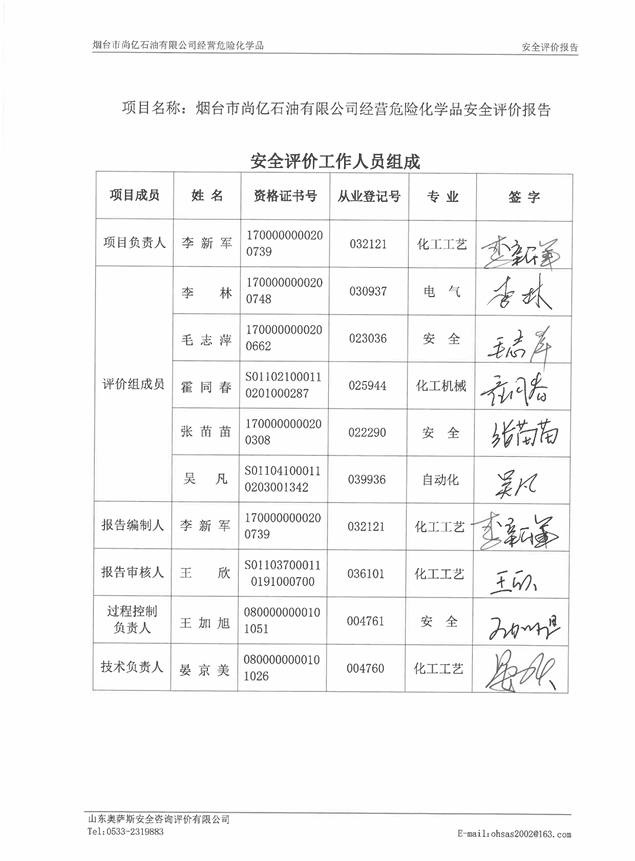 烟台市尚亿石油有限公司经营危险化学品 安全评价报告
项目名称：烟台市尚亿石油有限公司经营危险化学品安全评价报告
安全评价工作人员组成
项目成员 姓 名 资格证书号 从业登记号 专 业 签 字
项目负责人 李新军 1700000000200739 032121 化工工艺 李新军
评价组成员
李 林 1700000000200748 030937 电 气 李林
毛志萍 1700000000200662 023036 安 全 毛志萍
霍同春 S011021000110201000287 025944 化工机械 霍同春
张苗苗 1700000000200308 022290 安 全 张苗苗
吴 凡 S011041000110203001342 039936 自动化 吴凡
报告编制人 李新军 1700000000200739 032121 化工工艺 李新军
报告审核人 王 欣 S011037000110191000700 036101 化工工艺 王欣
过程控制
负责人 王加旭 0800000000101051 004761 安 全 王加旭
技术负责人 晏京美 0800000000101026 004760 化工工艺
山东奥萨斯安全咨询评价有限公司
Tel:0533-2319883 E-mail:ohsas2002@163.com